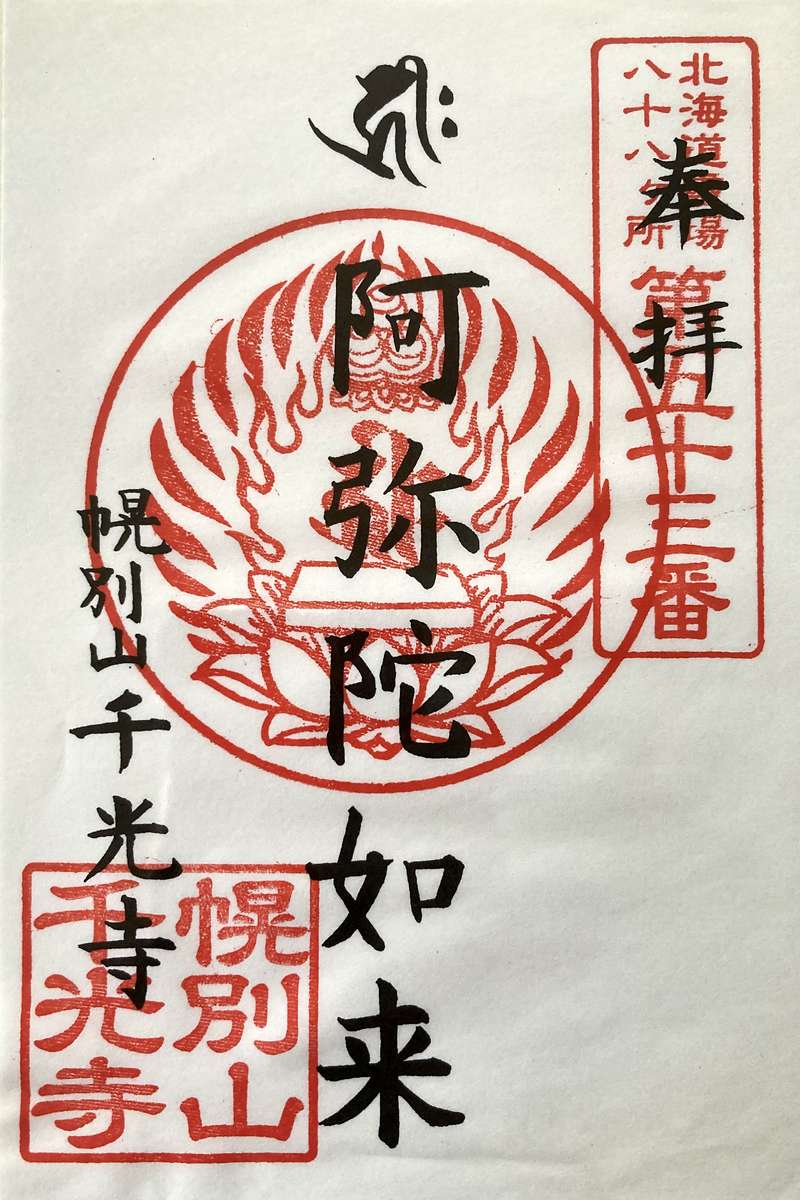 北海道霊場
八十八ヶ所
第五十三番
奉拝
阿弥陀如来
幌別山千光寺
幌別山
千光寺